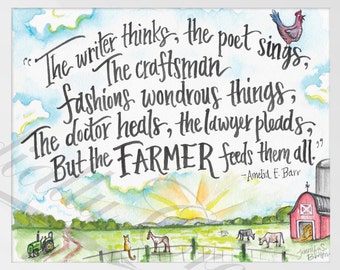 "The writer thinks, the poet sings,
The craftsman
fashions wondrous things,
The doctor heals, the lawyer pleads,
But the FARMER feeds them all."
-Amelia E. Barr